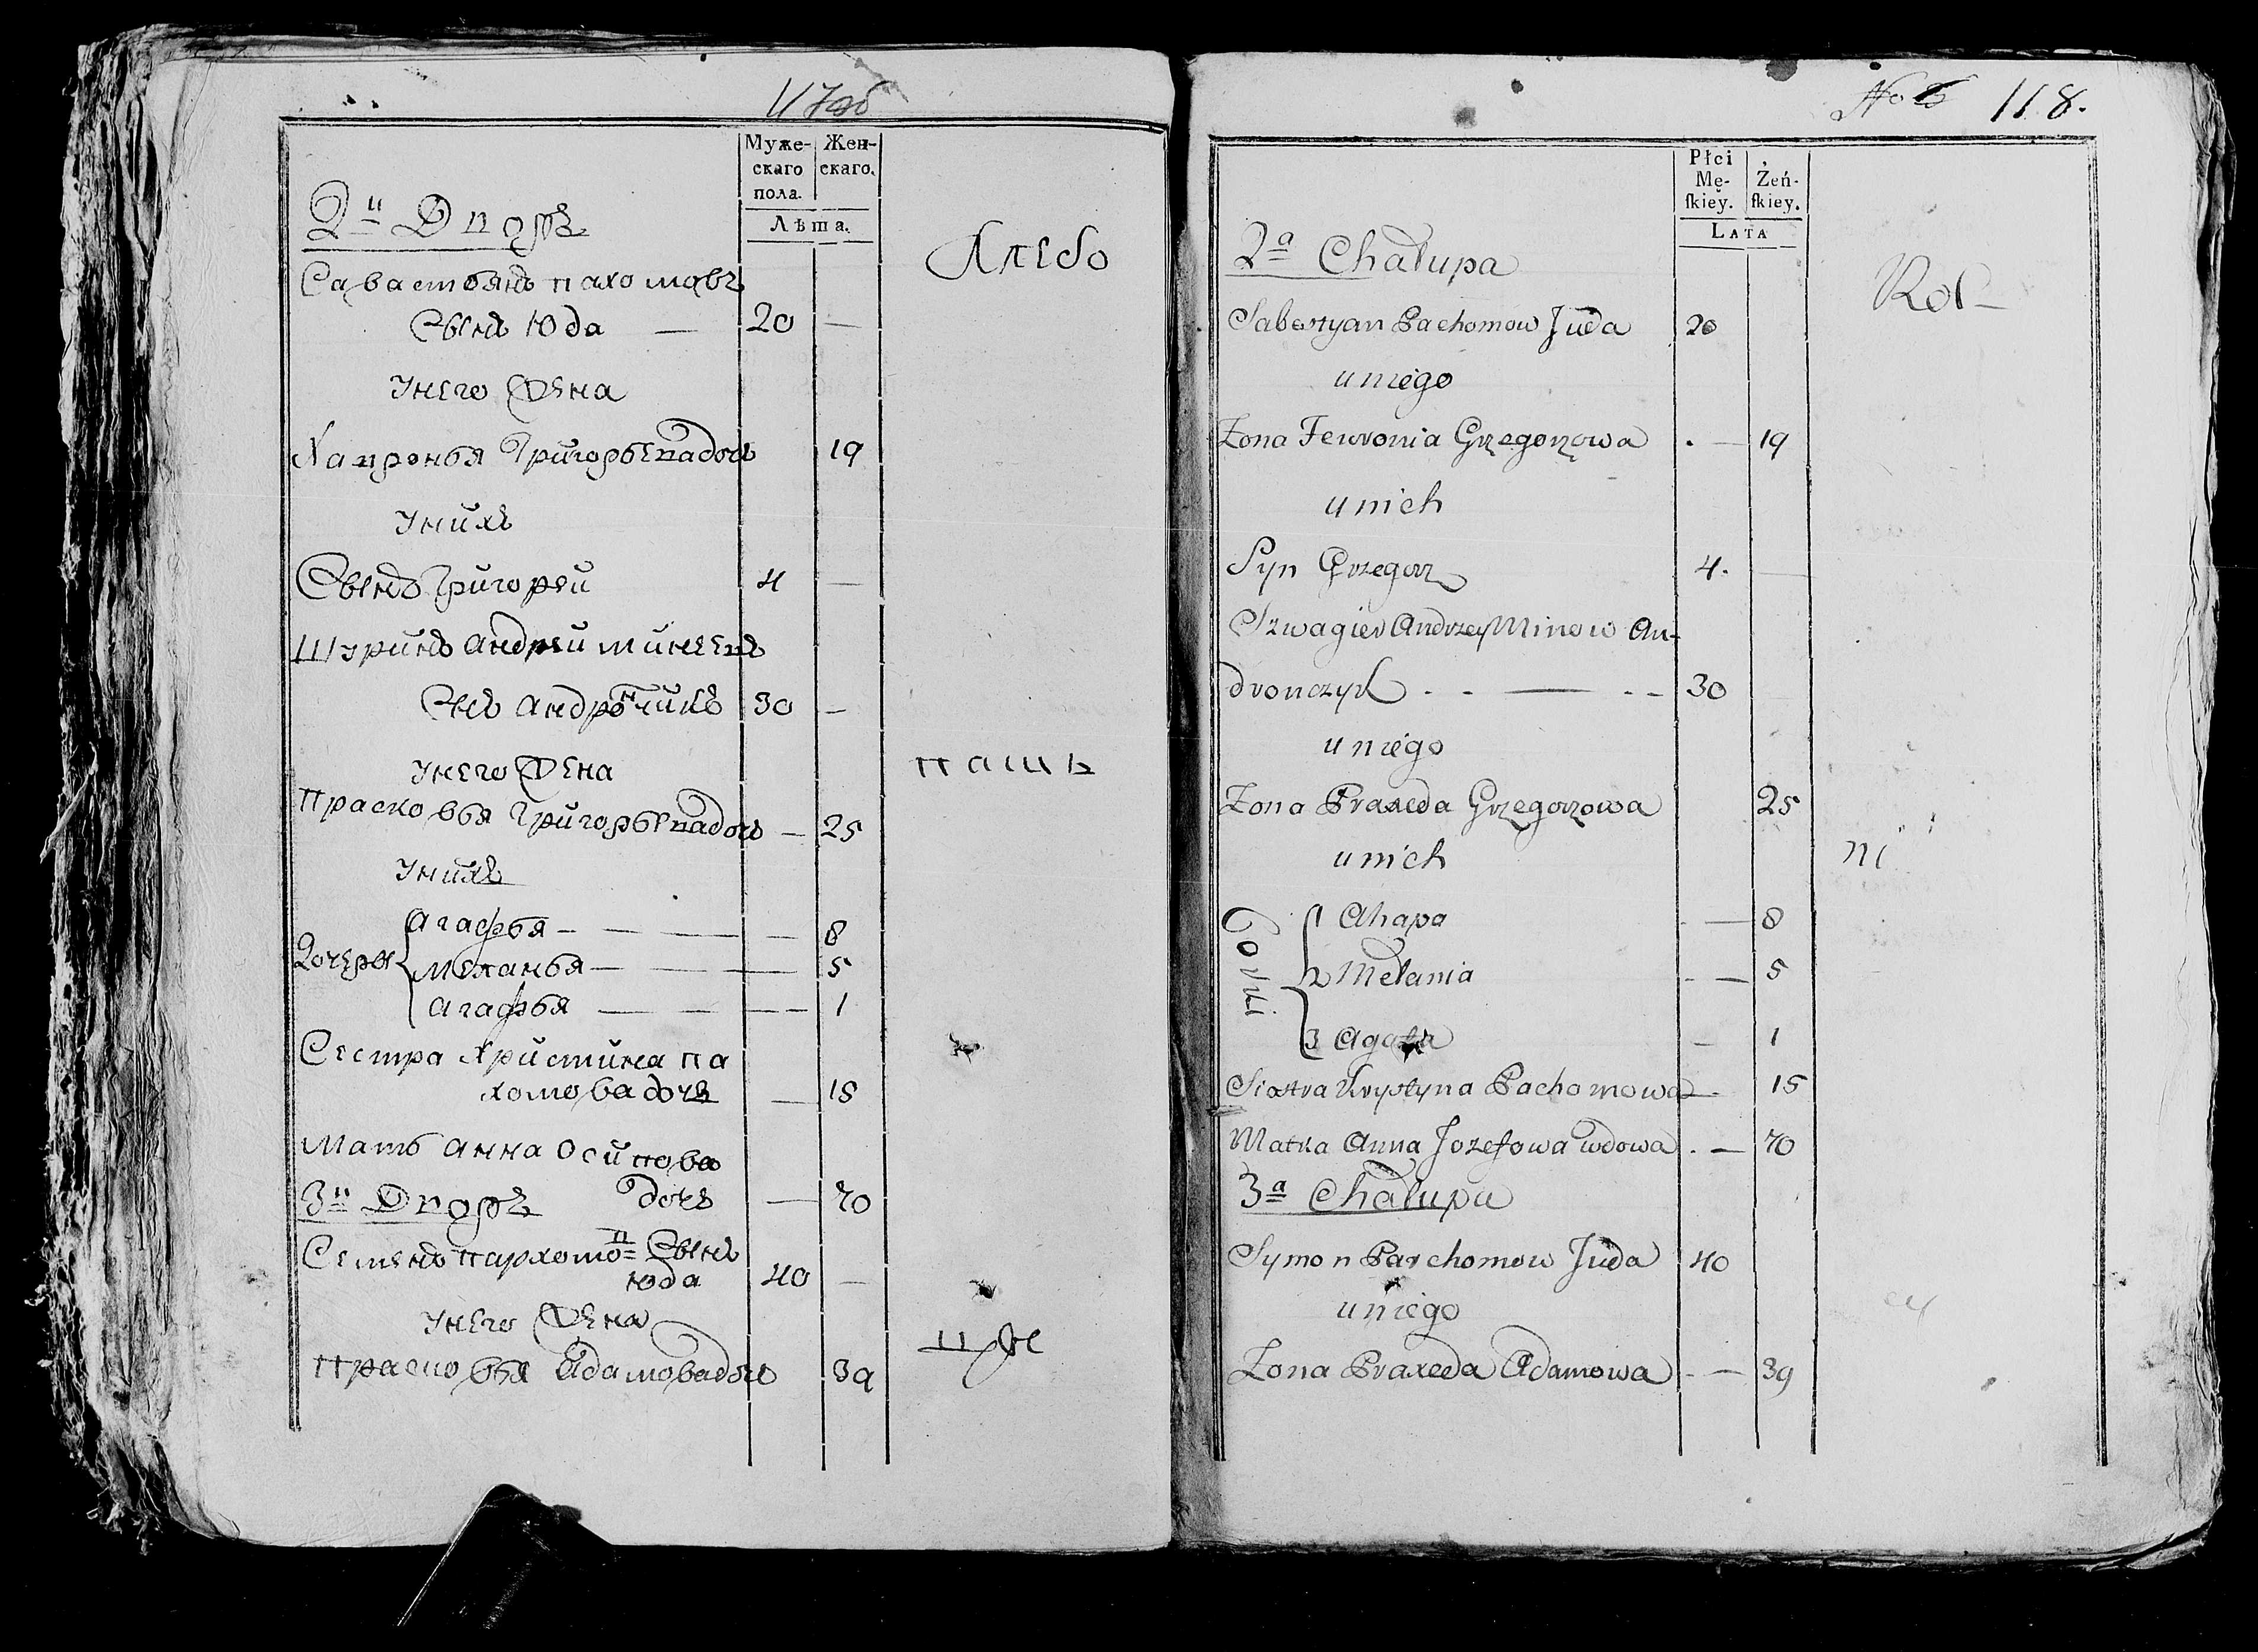 Муже-
скаго
пола.
Жен-
скаго.
Лѣта.
2й Дворъ
Савастьянъ пахомовъ
Сынъ Юда — 20 —
Унего Жена
Хапронья Григорьевадочь 19
Унихъ
Сынъ Григорей 4 —
Шуринъ андрей минеевъ
Снъ андрончикъ 30 —
Унего Жена
прасковья Григорьевадочь — 25
Унихъ
Дочери
агафья — 8
меланья — 5
агафья — 1
Сестра христина па
хомова дочь — 15
Мать анна Осипова
дочь — 70
3й Дворъ
Семенъ пархомо=в Сынъ
юда 40 —
Унего Жена
прасковья адамовадочь 39
Хлебо
паше
118.
Płci
Mę-
ſkiey.
Żeń-
ſkiey.
Lata
2a Chałupa
Sabestyan Pachomow Juda 20
u niego
Zona Fewronia Grzegorzowa . — 19
u nich
Syn Grzegorz 4. —
Szwagier Andrzey Minow An-
dronczyk . - — - - 30
u niego
Zona Praxeda Grzegorzowa 25
u nich
Corki
1 Ahapa - — 8
2 Melania - — 5
3 Agata — 1
Siostra Krystyna Pachomowa — 15
Matka Anna Jozefowa wdowa . — 70
3a Chałupa
Symon Parchomow Juda 40
u niego
Zona Praxeda Adamowa - — 39
Rol-
ni